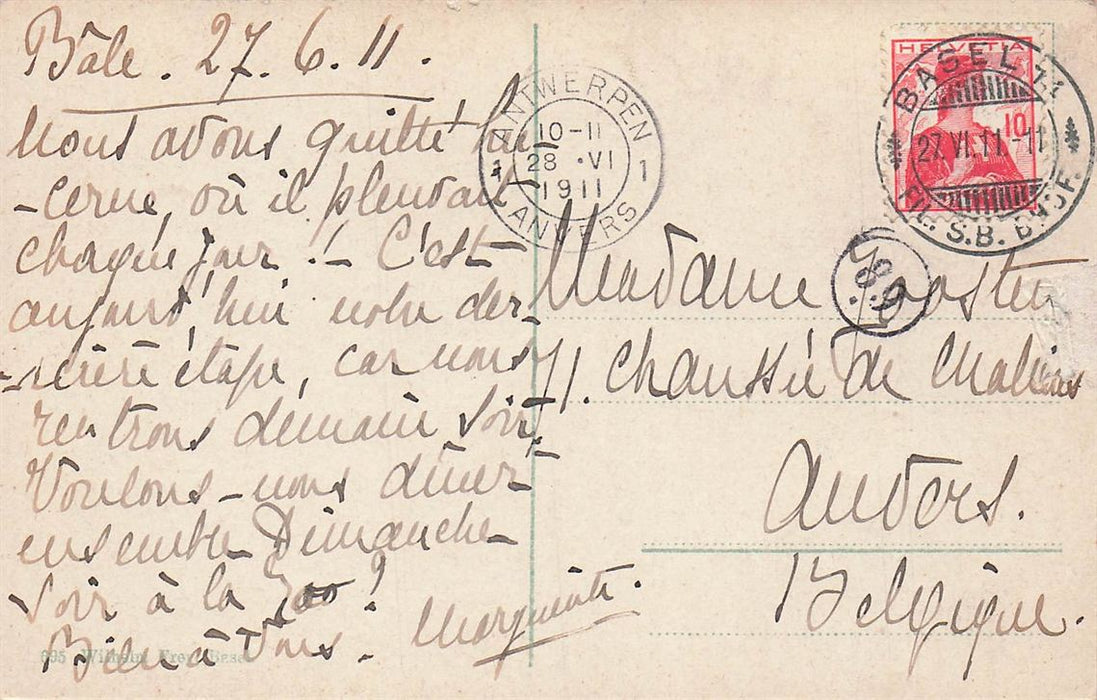 Bâle. 27.6.11.
Nous avons quitté Lu
-cerne, où il pleuvait
chaque jour ! - C'est
aujourd'hui notre der-
-nière étape, car nous
rentrons demain soir.
Voulons-nous dîner
ensemble Dimanche
soir à la Zoo ?
Bien à vous. Marguerite.
695 Wilhelm Frey, Basel
ANTWERPEN
10-11
1 28 .VI 1
1911
ANVERS
HELVETIA
10
BASEL
27.VI.11.-11
S.B. BHOF.
Madame
11. Chaussée de Malines
Anvers.
Belgique.